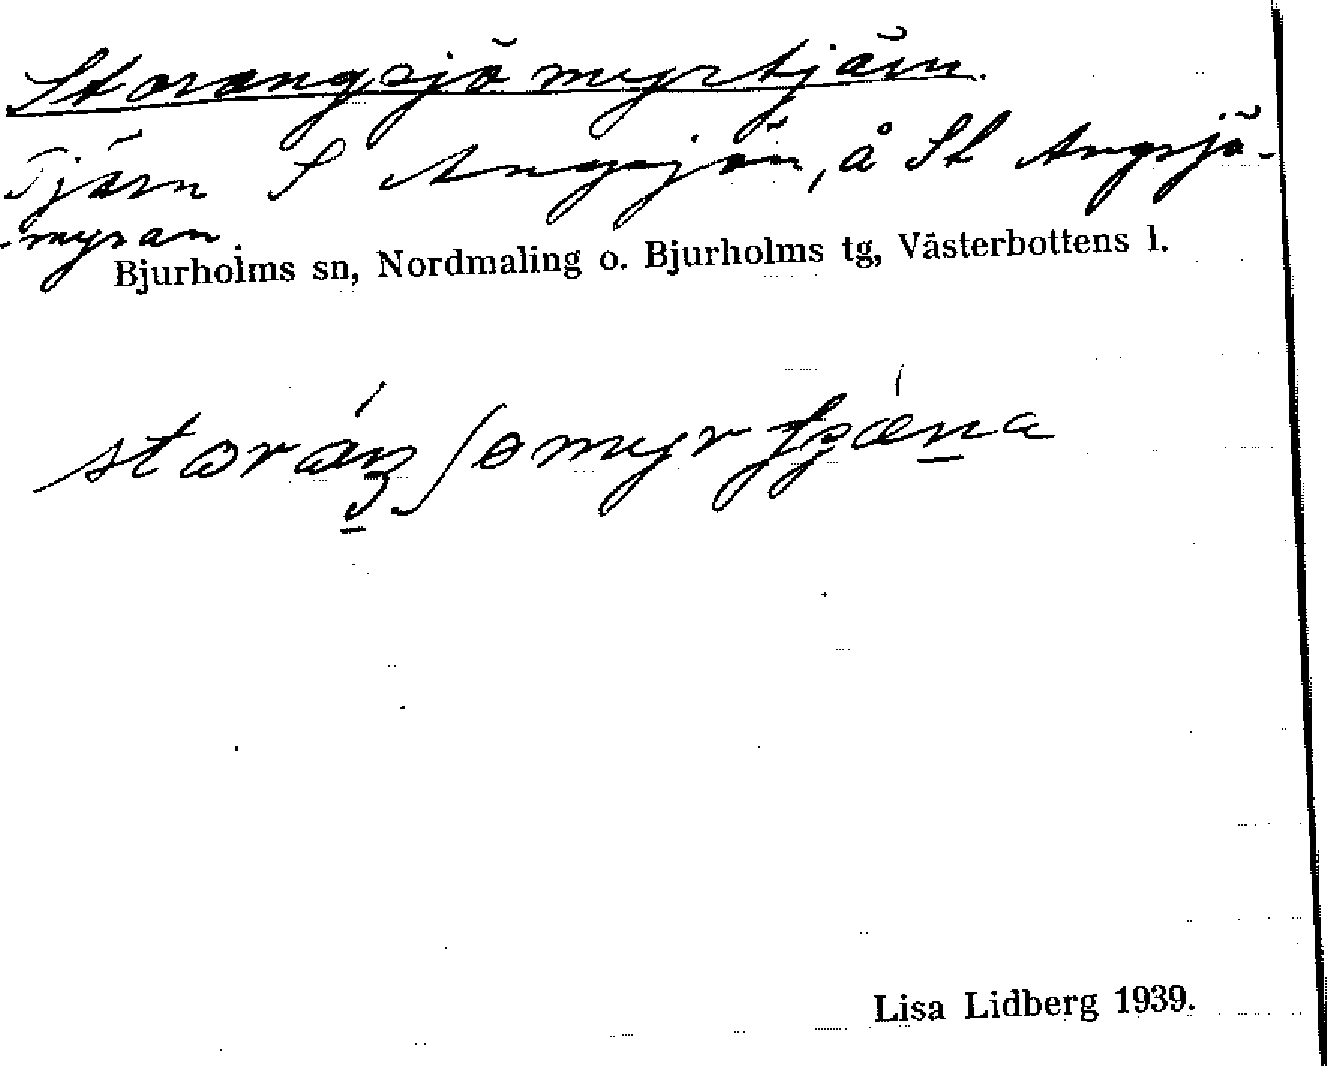 Storangsjömyrtjärn.
Tjärn S Angsjön, å St Angsjö-
-myran.
Bjurholms sn, Nordmaling o. Bjurholms tg, Västerbottens l.
Lisa Lidberg 1939.